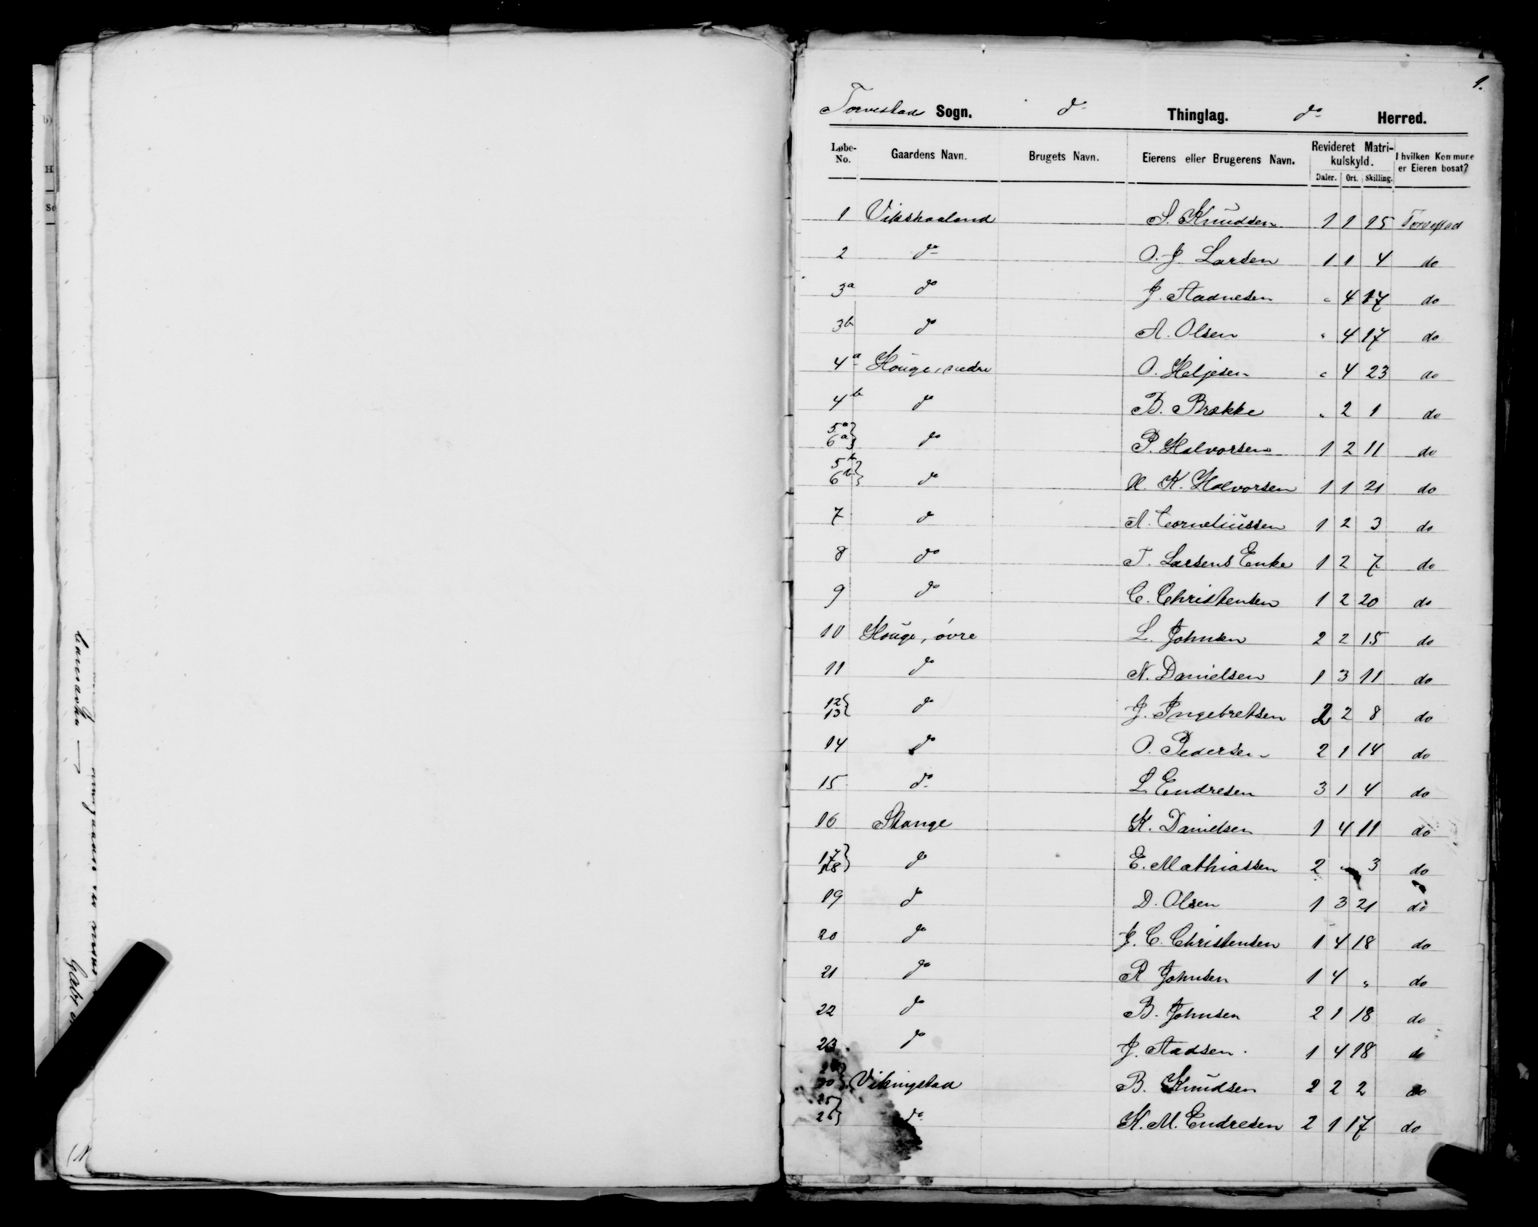 1.
Torvestad Sogn. do Thinglag. do Herred.
Løbe-No. Gaardens Navn. Brugets Navn. Eierens eller Brugerens Navn. Revideret Matrikulskyld. Daler. Ort. Skilling. I hvilken Kommune er Eieren bosat?
1 Vikshaaland S. Knudsen 1 1 15 Torvestad
2 do O. J. Larsen 1 1 4 do
3a do J. Aadnesen " 4 17 do
3b do A. Olsen " 4 17 do
4a Houge, nedre O. Heljesen " 4 23 do
4b do B. Brække " 2 1 do
5a 6a } do P. Halvorsen 1 2 11 do
5b 6b } do K. Halvorsen 1 1 21 do
7 do A. Corneliussen 1 2 3 do
8 do T. Larsens Enke 1 2 7 do
9 do C. Christensen 1 2 20 do
10 Houge, øvre L. Johnsen 2 2 15 do
11 do N. Danielsen 1 3 11 do
12 13 } do J. Ingebretsen 2 2 8 do
14 do O. Pedersen 2 1 14 do
15 do L. Endresen 3 1 4 do
16 Stange K. Danielsen 1 4 11 do
17 18 } do E. Mathiassen 2 " 3 do
19 do D. Olsen 1 3 21 do
20 do J. C. Christensen 1 4 18 do
21 do R Johnsen 1 4 " do
22 do B. Johnsen 2 1 18 do
23 do J. Aadsen. 1 4 18 do
30 } Vikingstad B. Knudsen 2 2 2 do
25 26 } do K. M. Endresen 2 1 17 do